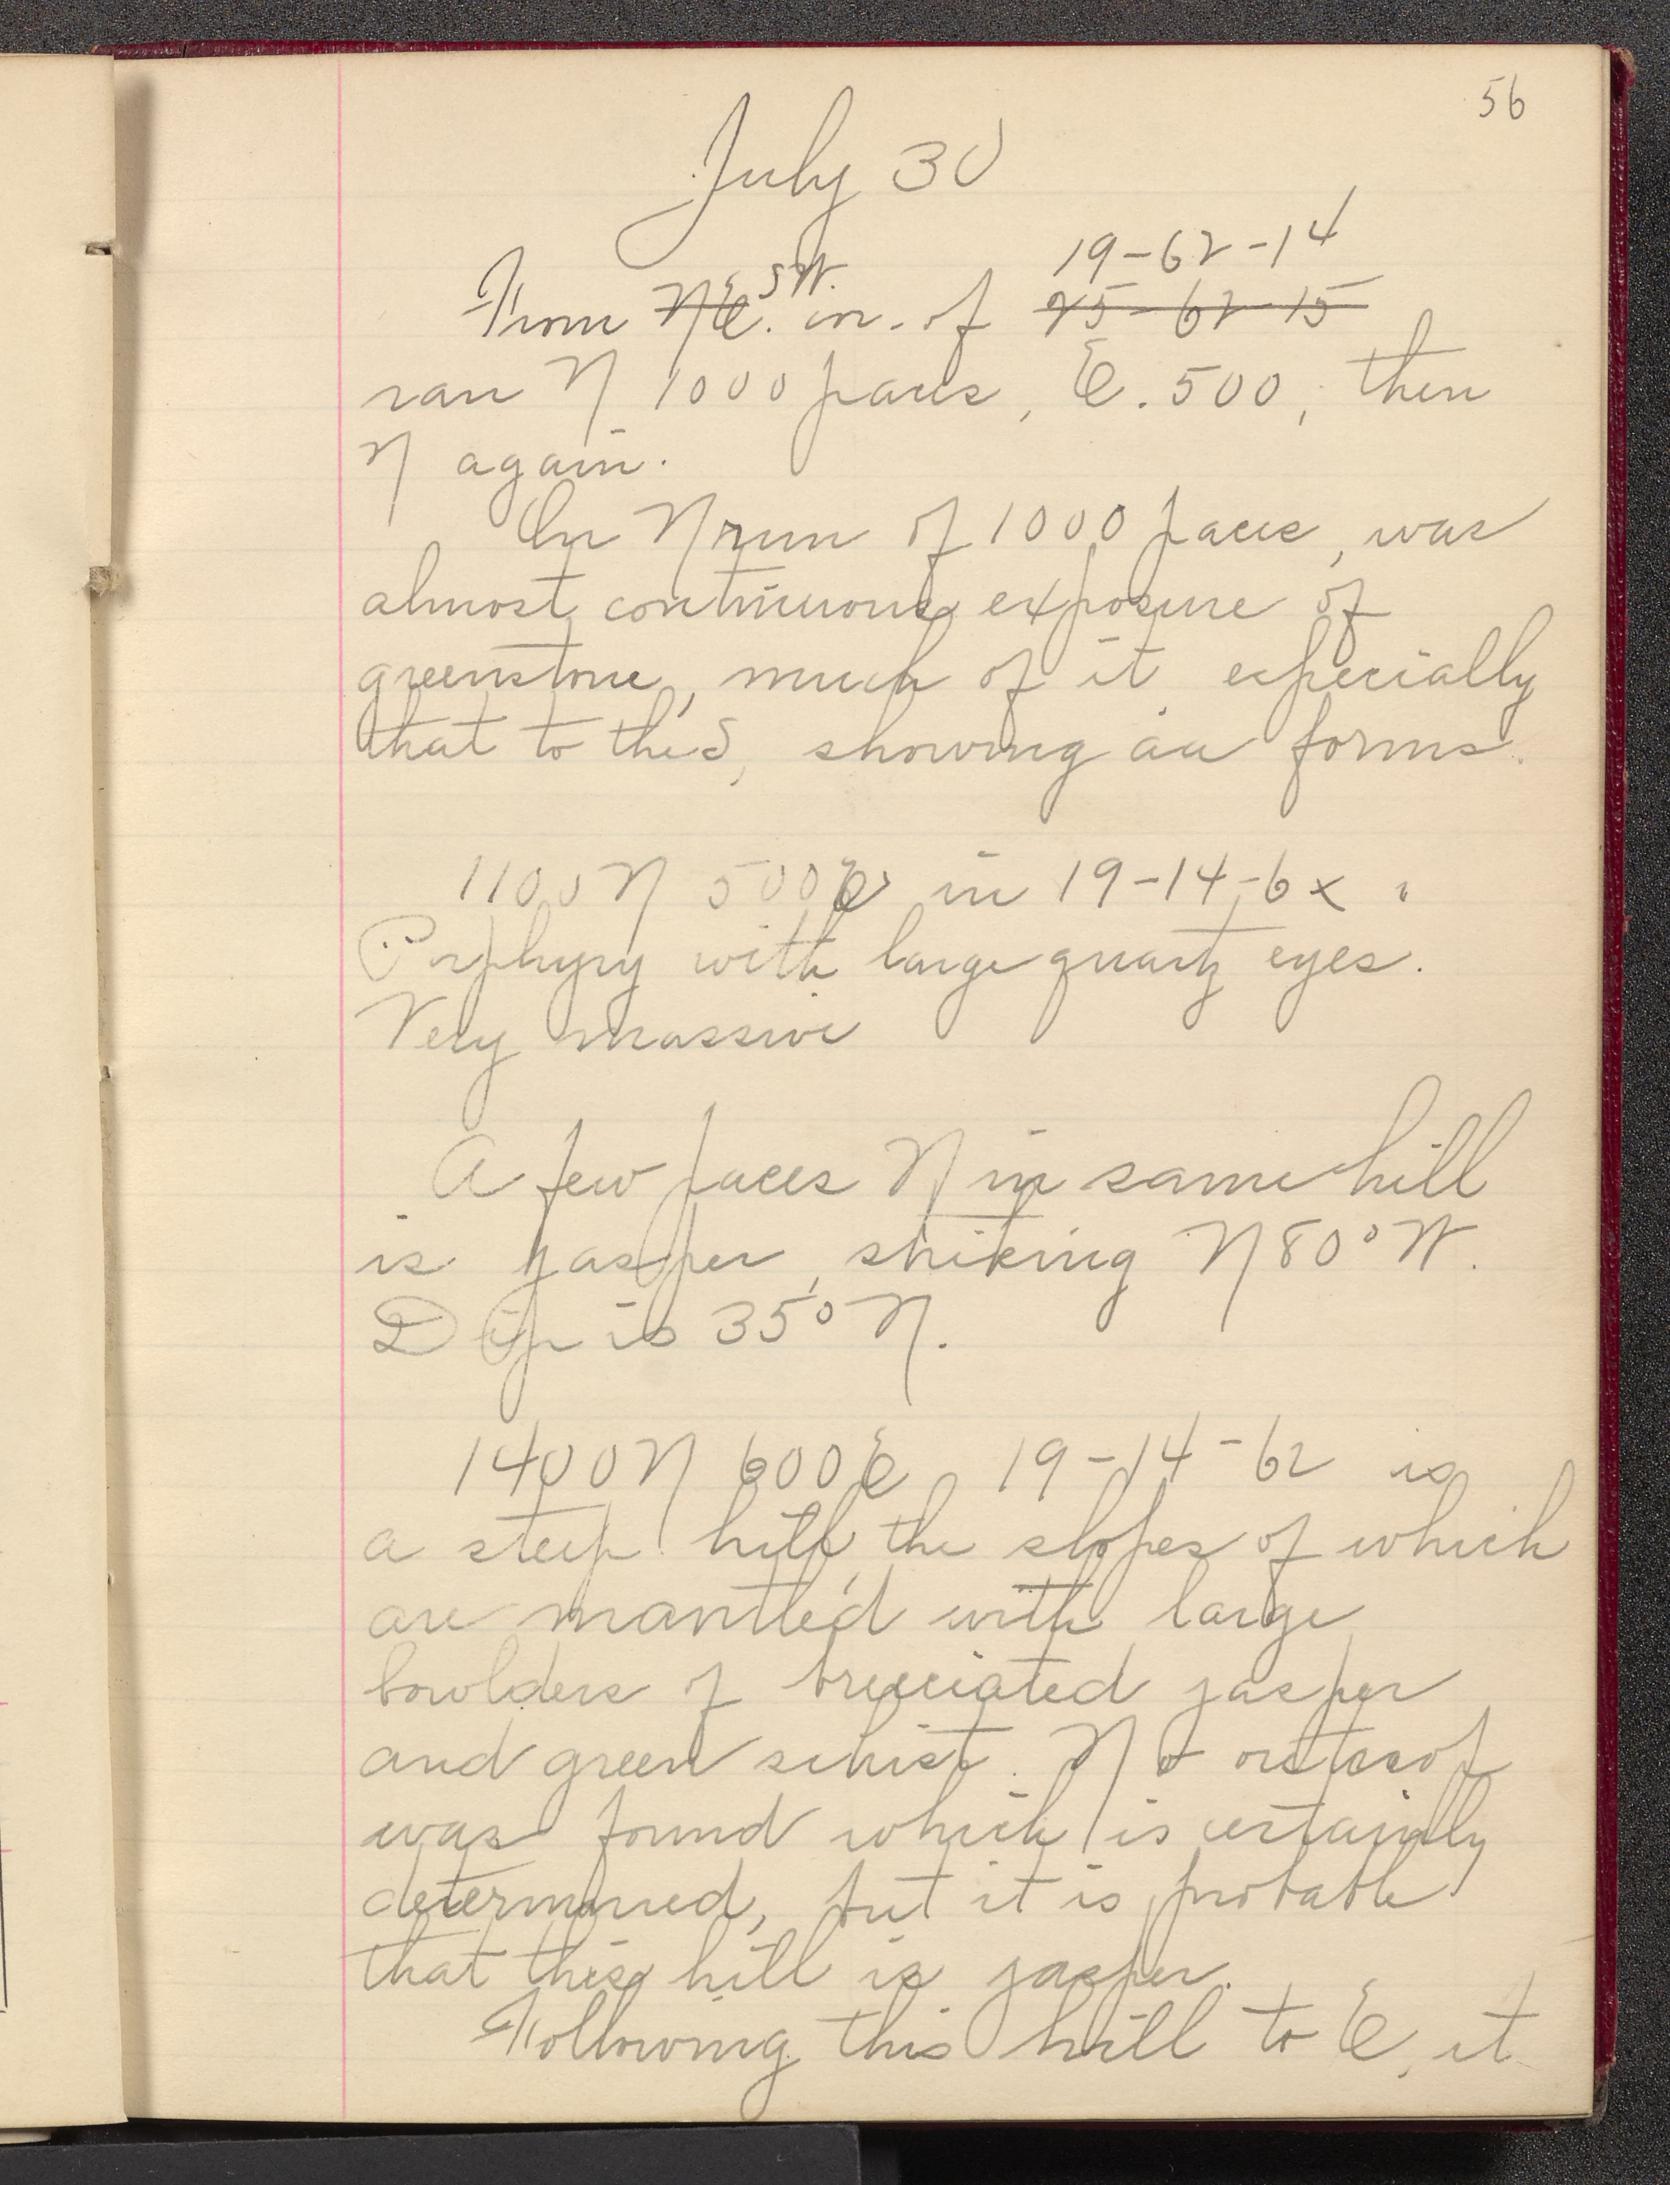 56
July 30
19-62-14
From N.E. S.W. cor. of 25-62-15
ran N 1000 paces, E. 500, then
N again.
In N run of 1000 paces, was
almost continuous exposure of
greenstone, much of it especially
that to the S, showing aa forms.
1100 N 500 E in 19-14-62
Porphyry with large quartz eyes.
Very massive
A few paces N in same hill
is jasper, striking N 80° W.
Dip is 35° N.
1400 N 600 E 19-14-62 is
a steep hill, the slopes of which
are mantled with large
bowlders of brecciated jasper
and green schist. No outcrop
was found which is certainly
determined, but it is probable
that this hill is jasper.
Following this hill to E, it